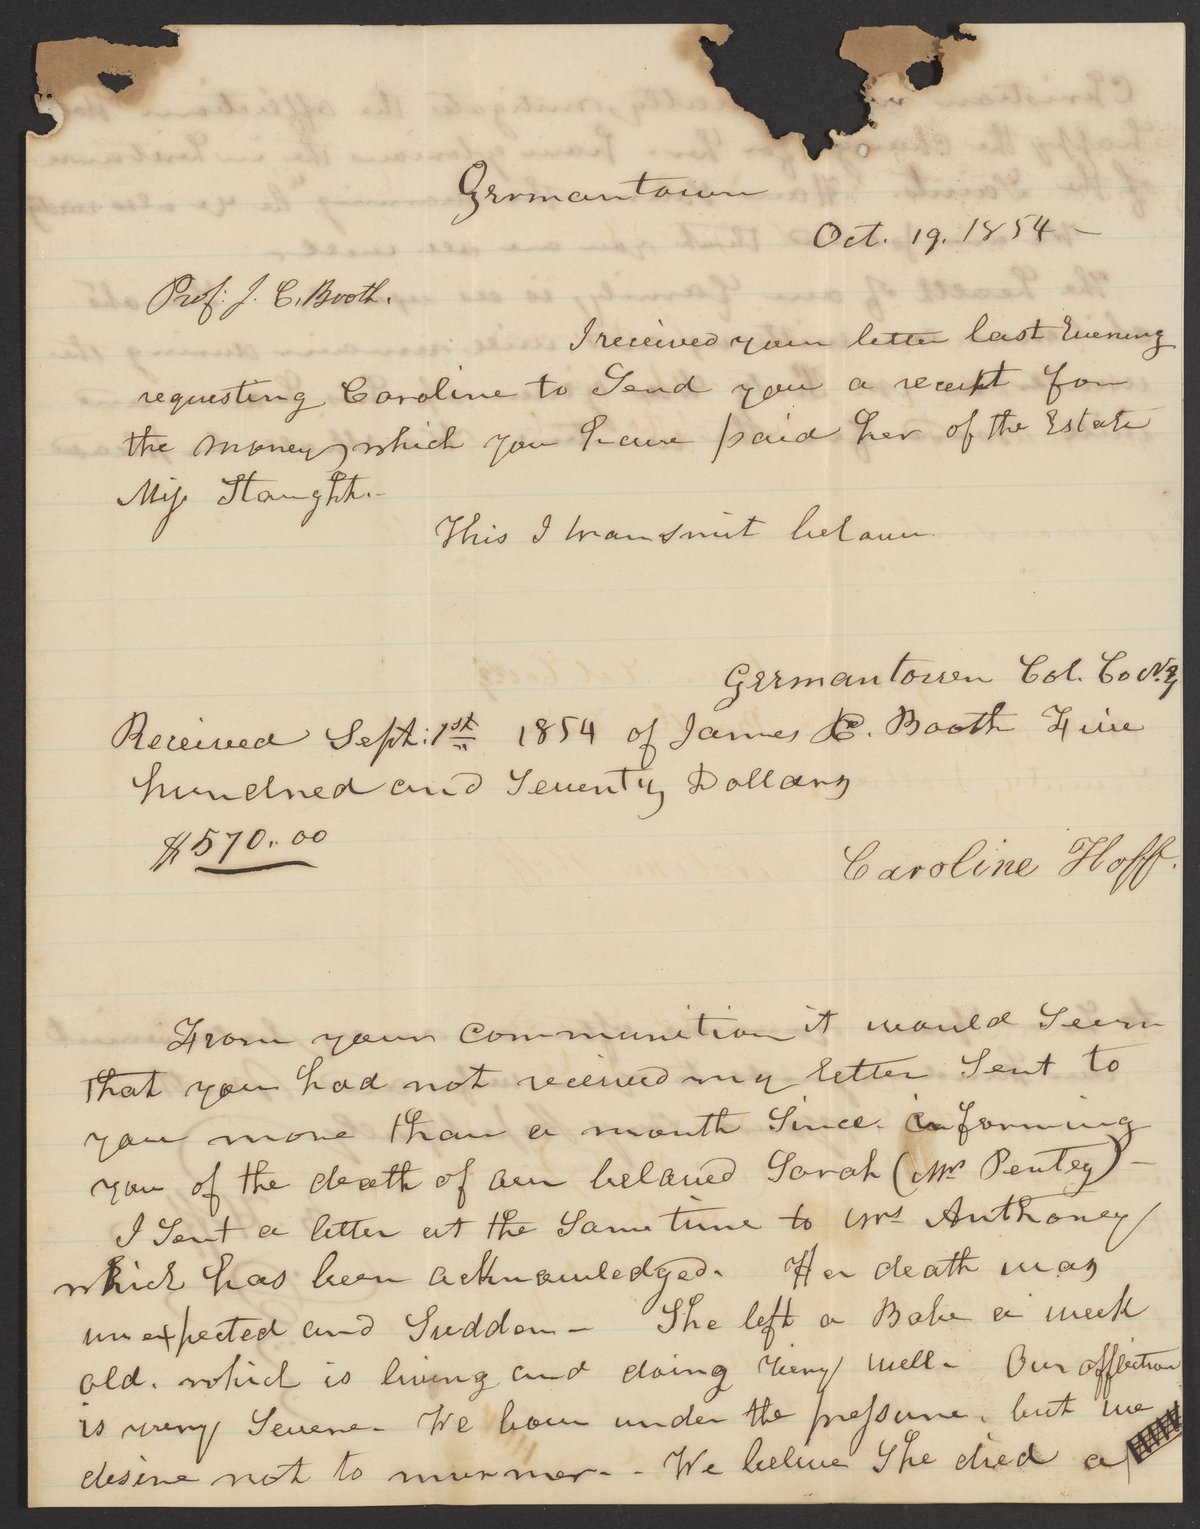 Germantown
Oct. 19. 1854 -
Prof: J. C. Booth.
I received your letter last Evening
requesting Caroline to Send you a receipt for
the money, which you have paid her of the Estate
Miss Staught.-
This I transmit below
Germantown Col. Co N.Y
Received Sept: 1st 1854 of James C. Booth Five
hundred and Seventy Dollars
$570.00
Caroline Hoff.
From your communition it would Seem
that you had not received my letter Sent to
you more than a month Since. informing
you of the death of our beloved Sarah (Mrs Pentey) -
I Sent a letter at the Same time to Mrs Anthoney
which has been acknowledged. Her death was
unexpected and Sudden - She left a Babe a week
old. which is living and doing very well - Our affliction
is very Severe - We bow under the pressure. but we
desire not to murmer - - We believe She died a